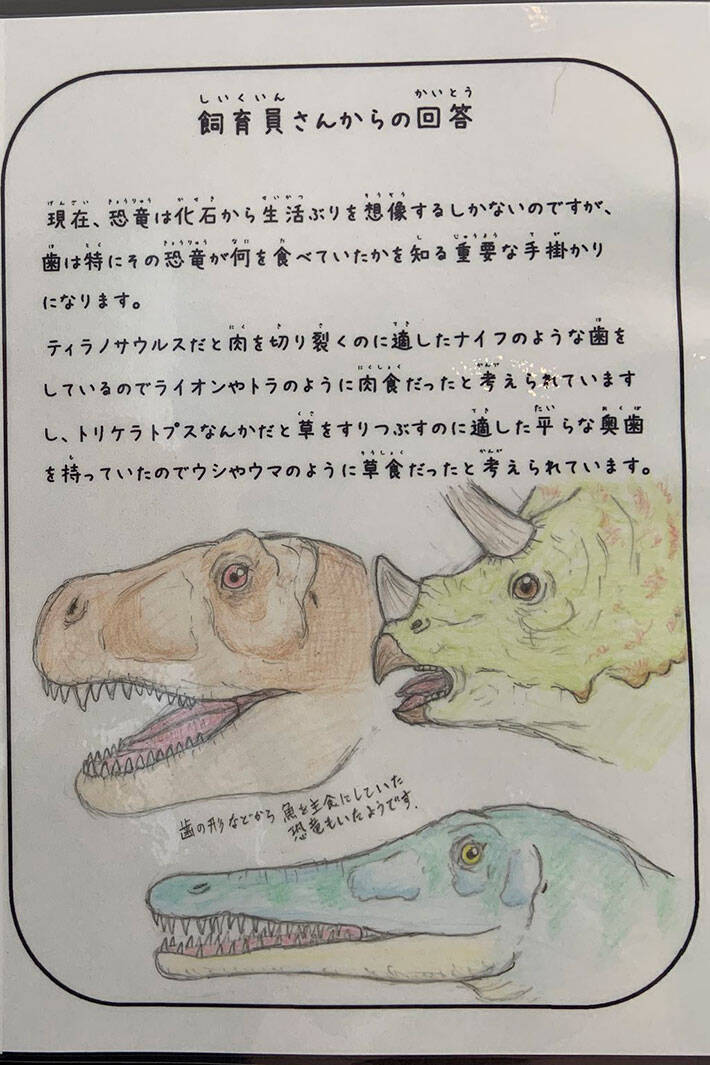 飼育員さんからの回答
現在、恐竜は化石から生活ぶりを想像するしかないのですが、
歯は特にその恐竜が何を食べていたかを知る重要な手掛かり
になります。
ティラノサウルスだと肉を切り裂くのに適したナイフのような歯を
しているのでライオンやトラのように肉食だったと考えられています
し、トリケラトプスなんかだと草をすりつぶすのに適した平らな奥歯
を持っていたのでウシやウマのように草食だったと考えられています。
歯の形などから魚を主食にしていた
恐竜もいたようです.